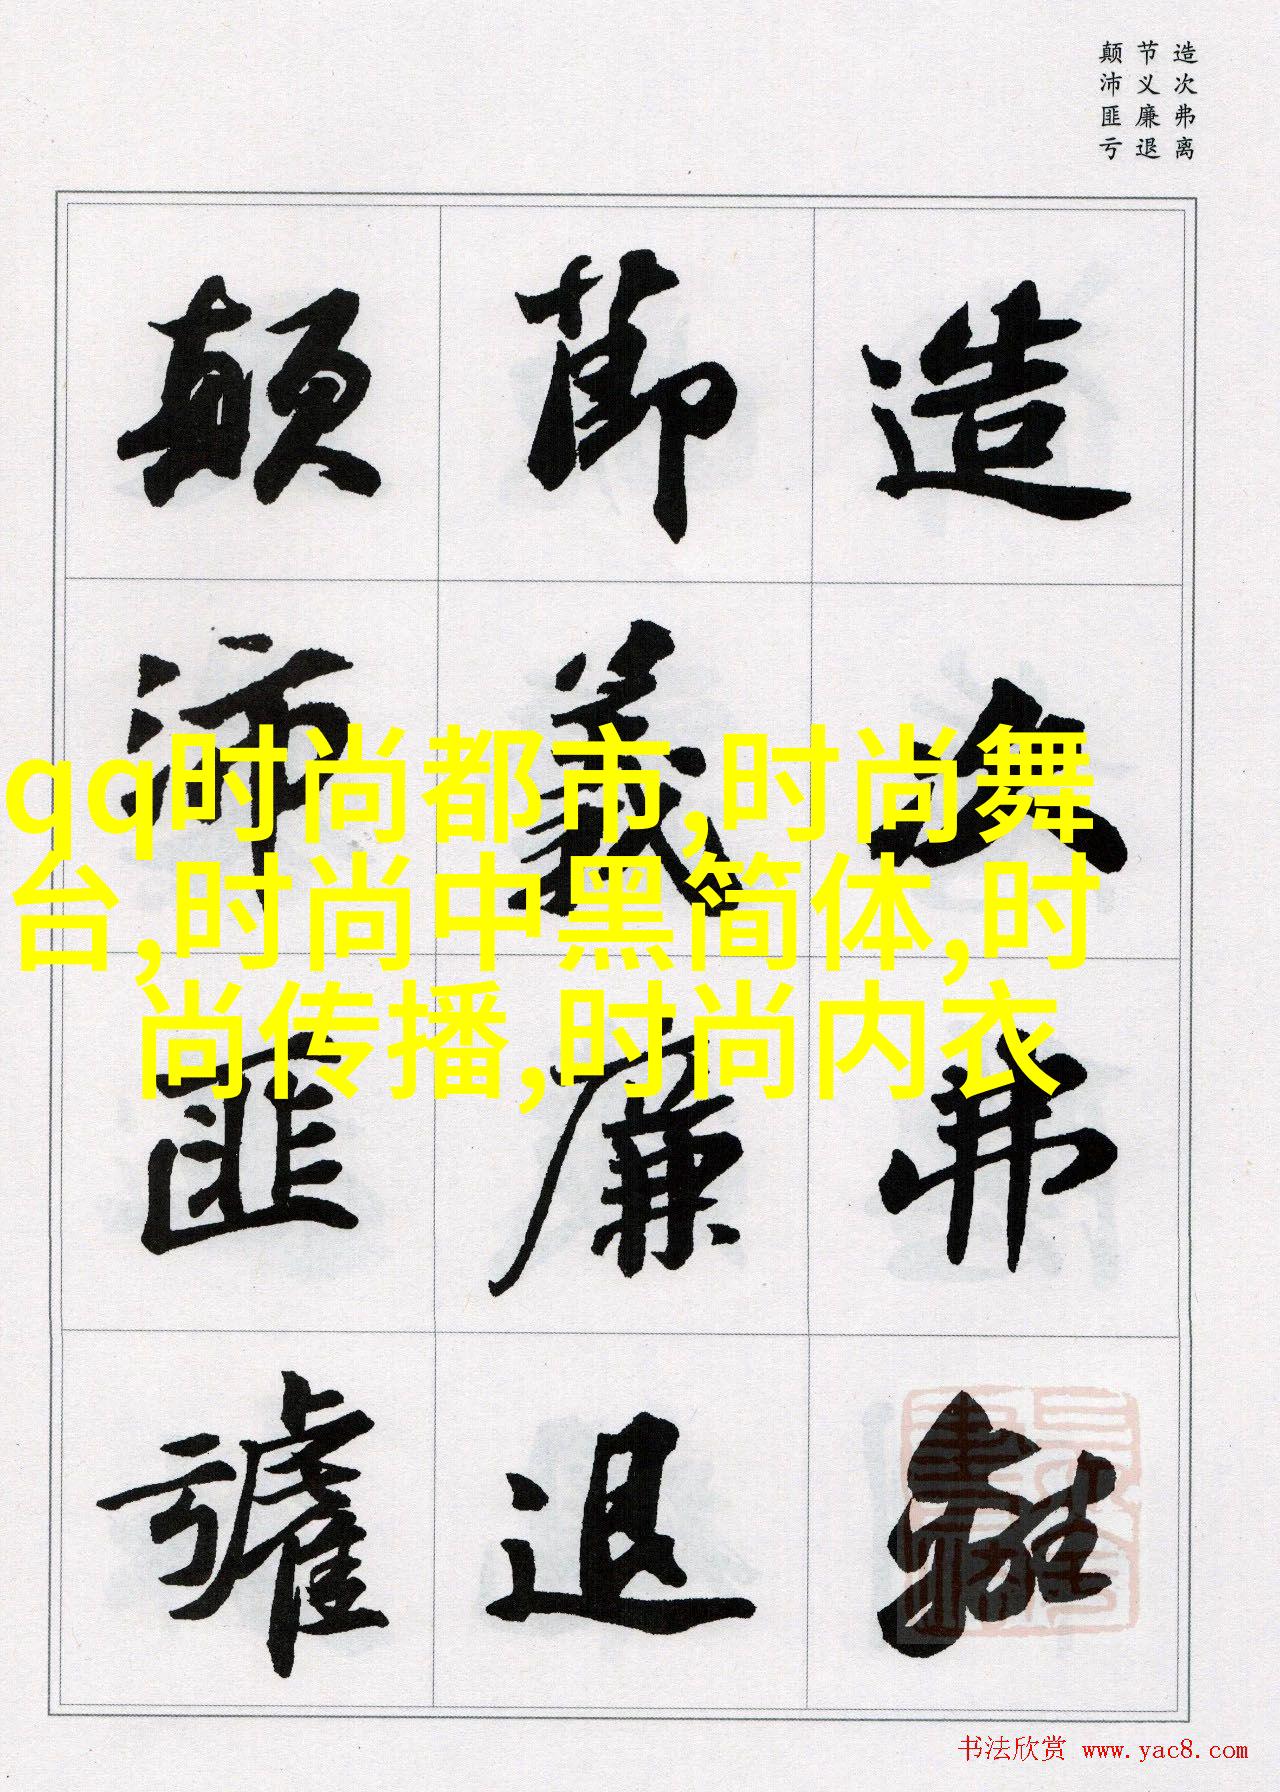 造次弗离
节义廉退
颠沛匪亏
造次弗離
節義廉退
顛沛匪虧
qq时尚都市,时尚舞
台,时尚中黑简体,时
尚传播,时尚内衣
书法欣赏 www.yac8.com